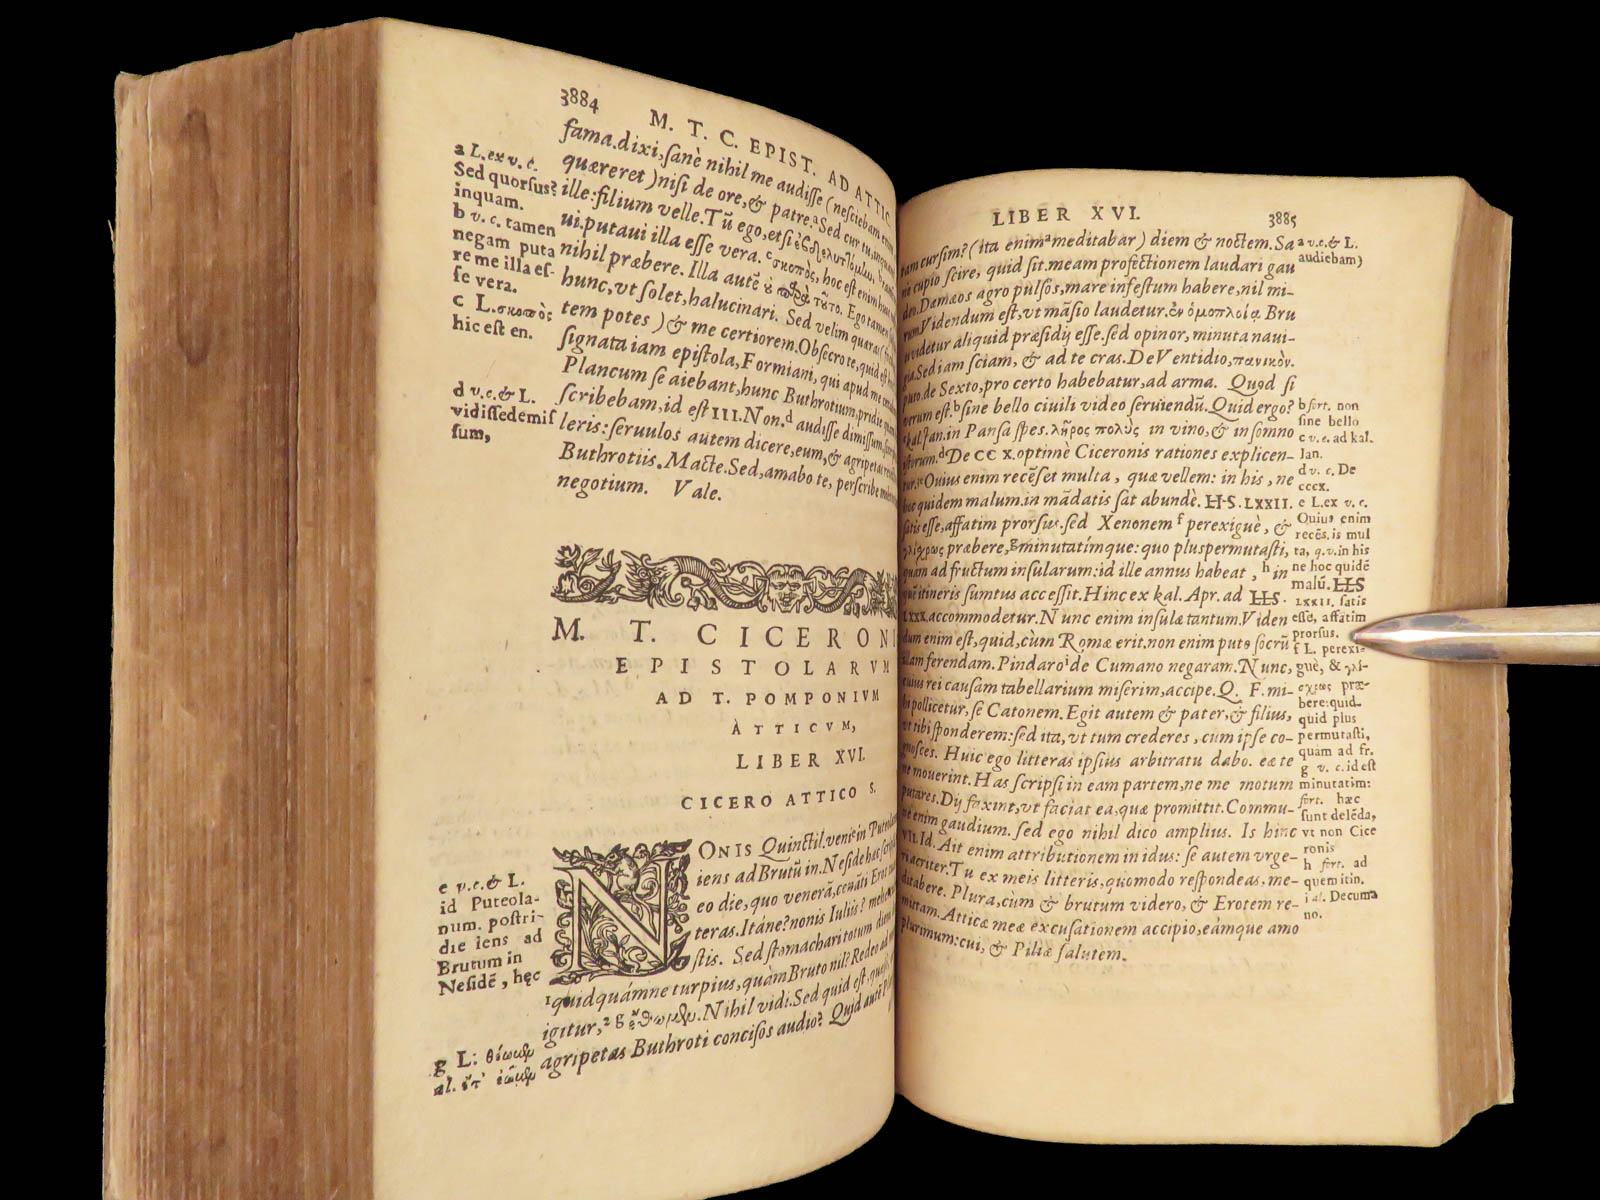 3884
M. T. C. EPIST. AD ATTIC
fama.dixi,ſanè nihil me audiſſe (neſciebam enim
quæreret )niſi de ore,& patre.ªSed cur tu,
ille:filium velle.Tũ ego,etſi
ui.putaui illa eſſe vera. ᶜσκοπὸς, hoc eſt enim
nihil præbere. Illa autẽ
hunc,vt ſolet,halucinari. Sed velim quæras
tem potes )& me certiorem.Obſecro te,quid eſt
ſignata iam epiſtola, Formiani, qui apud me
Plancum ſe aiebant,hunc Buthrotium,pridie
ſcribebam,id eſt III.Non.ᵈ audiſſe dimiſſum,
leris:ſeruulos autem dicere,eum,& agripetas
Buthrotiis. Macte.Sed,amabo te, perſcribe
negotium. Vale.
a L.ex v. c.
Sed quorſus?
inquam.
b v. c. tamen
negam puta
re me illa eſ-
ſe vera.
c L.σκοπὸς
hic eſt en.
d v.c.& L.
vidiſſedemiſ
ſum,
M. T. CICERONI
EPISTOLARVM
AD T. POMPONIVM
ATTICVM,
LIBER XVI.
CICERO ATTICO S.
NONIS Quinctil.veni in Puteola
iens ad Brutũ in.Neſide hæc ſcripſi
eo die,quo venerã,cenãti Eros
teras.Itáne?nonis Iuliis?
ſtis. Sed ſtomachari totum diem
quidquámne turpius,quàm Bruto nil? Redeo ad
igitur, .Nihil vidi.Sed quid eſt,quæſo,
agripetas Buthroti conciſos audio? Quid autẽ
e v.c.& L.
id Puteola-
num. poſtri-
die iens ad
Brutum in
Neſidẽ , hęc
g L:
al.
LIBER XVI.
3885
tam curſim? (ita enimªmeditabar ) diem & noctem.Sa
nè cupio ſcire, quid ſit.meam profectionem laudari gau
deo.Dæmæos agro pulſos,mare infeſtum habere,nil mi-
rum.Videndum eſt,vt mãſio laudetur.ἐν ὁμοπλοίᾳ. Bru
to videtur aliquid præſidij eſſe.ſed opinor, minuta naui-
gia.Sed iam ſciam, & ad te cras. De Ventidio,πανικὸν.
puto.de Sexto,pro certo habebatur,ad arma. Quod ſi
verum eſt.ᵇſine bello ciuili video ſeruiendũ.Quid ergo?
kal.Ian.in Panſa ſpes.λῆρος πολὺς in vino,& in ſomno
iſtorum.ᵈDe CC X.optimè Ciceronis rationes explicen-
tur.ᵉOuius enim recẽſet multa , quæ vellem: in his , ne
hoc quidem malum.in mãdatis ſat abundè. HS. LXXII.
ſatis eſſe,affatim prorſus.ſed Xenonem ᶠ perexiguè , &
γλίχρως præbere,ᵍminutatímque: quo pluspermutaſti,
quam ad fructum inſularum:id ille annus habeat , ʰ in
quẽ itineris ſumtus acceſſit.Hinc ex kal. Apr. ad HS.
LXXX.accommodetur.Nunc enim inſulæ tantum.Viden
dum enim eſt,quid,cùm Romæ erit.non enim puto ſocrũ
illam ferendam. Pindaroⁱde Cumano negaram.Nunc,
cuius rei cauſam tabellarium miſerim,accipe.Q. F. mi-
hi pollicetur,ſe Catonem.Egit autem & pater,& filius,
vt tibi ſponderem:ſed ita,vt tum crederes , cum ipſe co-
gnoſces. Huic ego litteras ipſius arbitratu dabo. eæ te
ne mouerint.Has ſcripſi in eam partem,ne me motum
putares.Dij faxint,vt faciat ea,quæ promittit.Commu-
ne enim gaudium. ſed ego nihil dico amplius. Is hinc
VII.Id. Ait enim attributionem in idus: ſe autem vrge-
ri acriter.Tu ex meis litteris,quomodo reſpondeas,me-
ditabere. Plura,cùm & brutum videro, & Erotem re-
mittam. Atticæ meæ excuſationem accipio,eámque amo
plurimum:cui, & Piliæ ſalutem.
a v.c.& L.
audiebam)
b fort. non
ſine bello
c v.c. ad kal.
Ian.
d v. c. De
cccx.
e L.ex v. c.
Ouius enim
recẽſ.is mul
ta, q.v.in his
ne hoc quidẽ
malũ. HS
LXXII. ſatis
eſſe, affatim
prorſus.
f L. perexi-
guè, & γλί-
χρως præ-
bere:quid-
quid plus
permutaſti,
quàm ad fr.
g v. c. id eſt
minutatim:
fort. hæc
ſunt delẽda,
vt non Cice
ronis
h fort. ad
quem itin.
i al. Decuma
no.